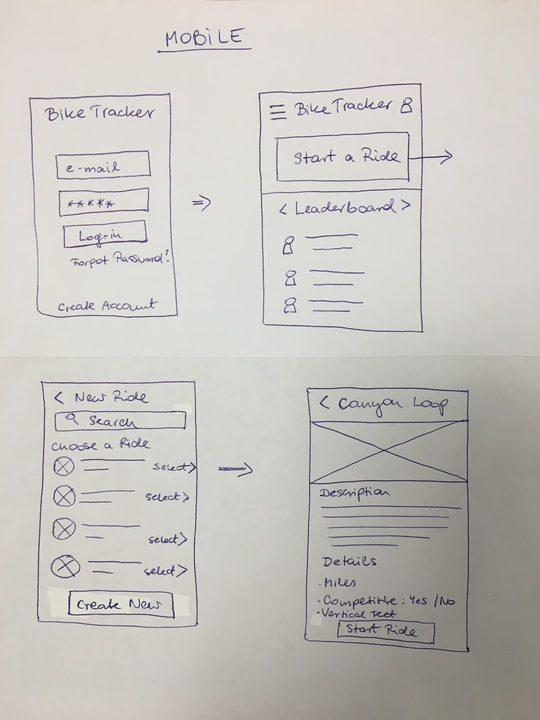 MOBILE
Bike Tracker
e-mail
*****
Log-in
Forgot Password?
Create Account
Bike Tracker
Start a Ride
< Leaderboard >
< New Ride
Search
Choose a Ride
select >
select >
select >
select >
Create New
< Canyon Loop
Description
Details
- Miles
- Competitive: Yes / No
- Vertical Feet
Start Ride